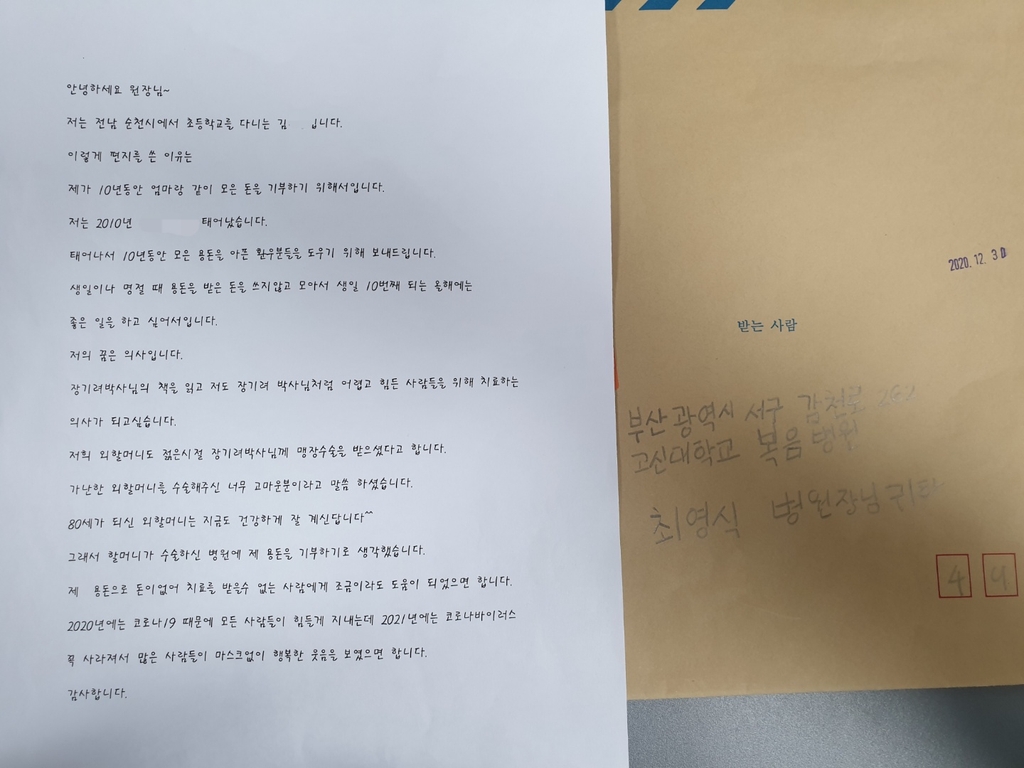 안녕하세요 원장님~
저는 전남 순천시에서 초등학교를 다니는 김 입니다.
이렇게 편지를 쓴 이유는
제가 10년동안 엄마랑 같이 모은 돈을 기부하기 위해서입니다.
저는 2010년 태어났습니다.
태어나서 10년동안 모은 용돈을 아픈 환우분들을 도우기 위해 보내드립니다.
생일이나 명절 때 용돈을 받은 돈을 쓰지않고 모아서 생일 10번째 되는 올해에는
좋은 일을 하고 싶어서입니다.
저의 꿈은 의사입니다.
장기려박사님의 책을 읽고 저도 장기려 박사님처럼 어렵고 힘든 사람들을 위해 치료하는
의사가 되고싶습니다.
저희 외할머니도 젊은시절 장기려박사님께 맹장수술을 받으셨다고 합니다.
가난한 외할머니를 수술해주신 너무 고마운분이라고 말씀 하셨습니다.
80세가 되신 외할머니는 지금도 건강하게 잘 계신답니다^^
그래서 할머니가 수술하신 병원에 제 용돈을 기부하기로 생각했습니다.
제 용돈으로 돈이없어 치료를 받을수 없는 사람에게 조금이라도 도움이 되었으면 합니다.
2020년에는 코로나19 때문에 모든 사람들이 힘들게 지내는데 2021년에는 코로나바이러스
꼭 사라져서 많은 사람들이 마스크없이 행복한 웃음을 보였으면 합니다.
감사합니다.
2020. 12. 30
받는 사람
부산광역시 서구 감천로 262
고신대학교 복음병원
최영식 병원장님 귀하
4